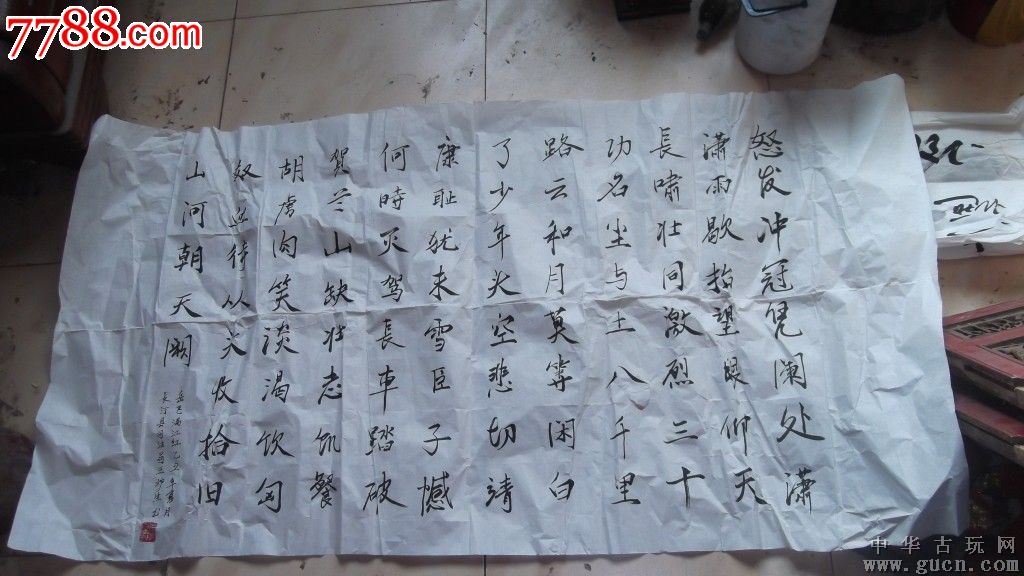 7788.com
怒发冲冠凭阑处潇
潇雨歇抬望眼仰天
長啸壮同激烈三十
功名尘与土八千里
路云和月莫等闲白
了少年头空悲切靖
康耻犹未雪臣子憾
何時灭驾長車踏破
贺兰山缺壮志饥餐
胡虏肉笑淡渴饮匈
奴血待从头收拾旧
山河朝天阙
岳飞满江红乙丑年
中华古玩网
www.gucn.com